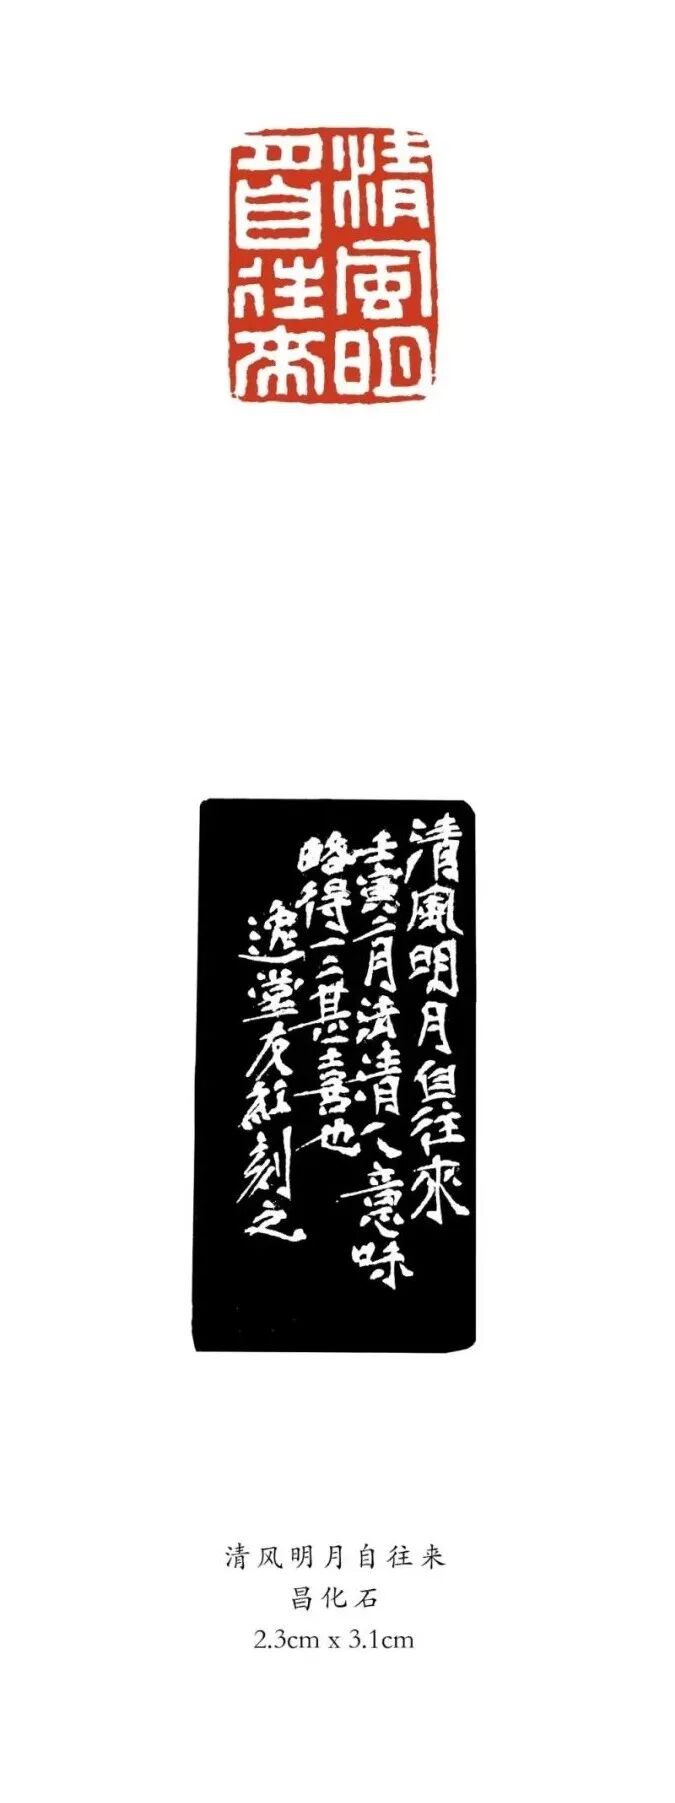 清風明
月自往來
清風明月自往來
壬寅二月法清人意味
略得一二甚喜也
逸堂友紅刻之
清风明月自往来
昌化石
2.3cm x 3.1cm